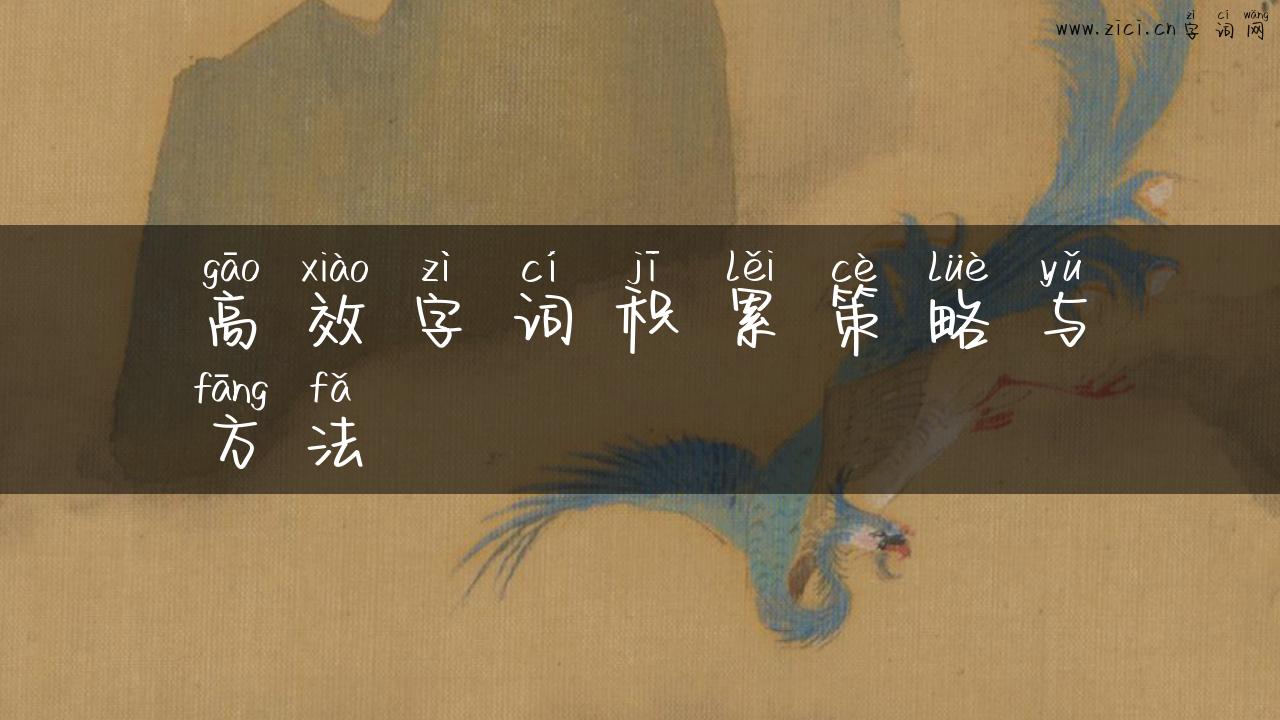 zì cí wǎng
www.zici.cn 字词网
gāo xiào zì cí jī lěi cè lüè yǔ
高效字词积累策略与
fāng fǎ
方法